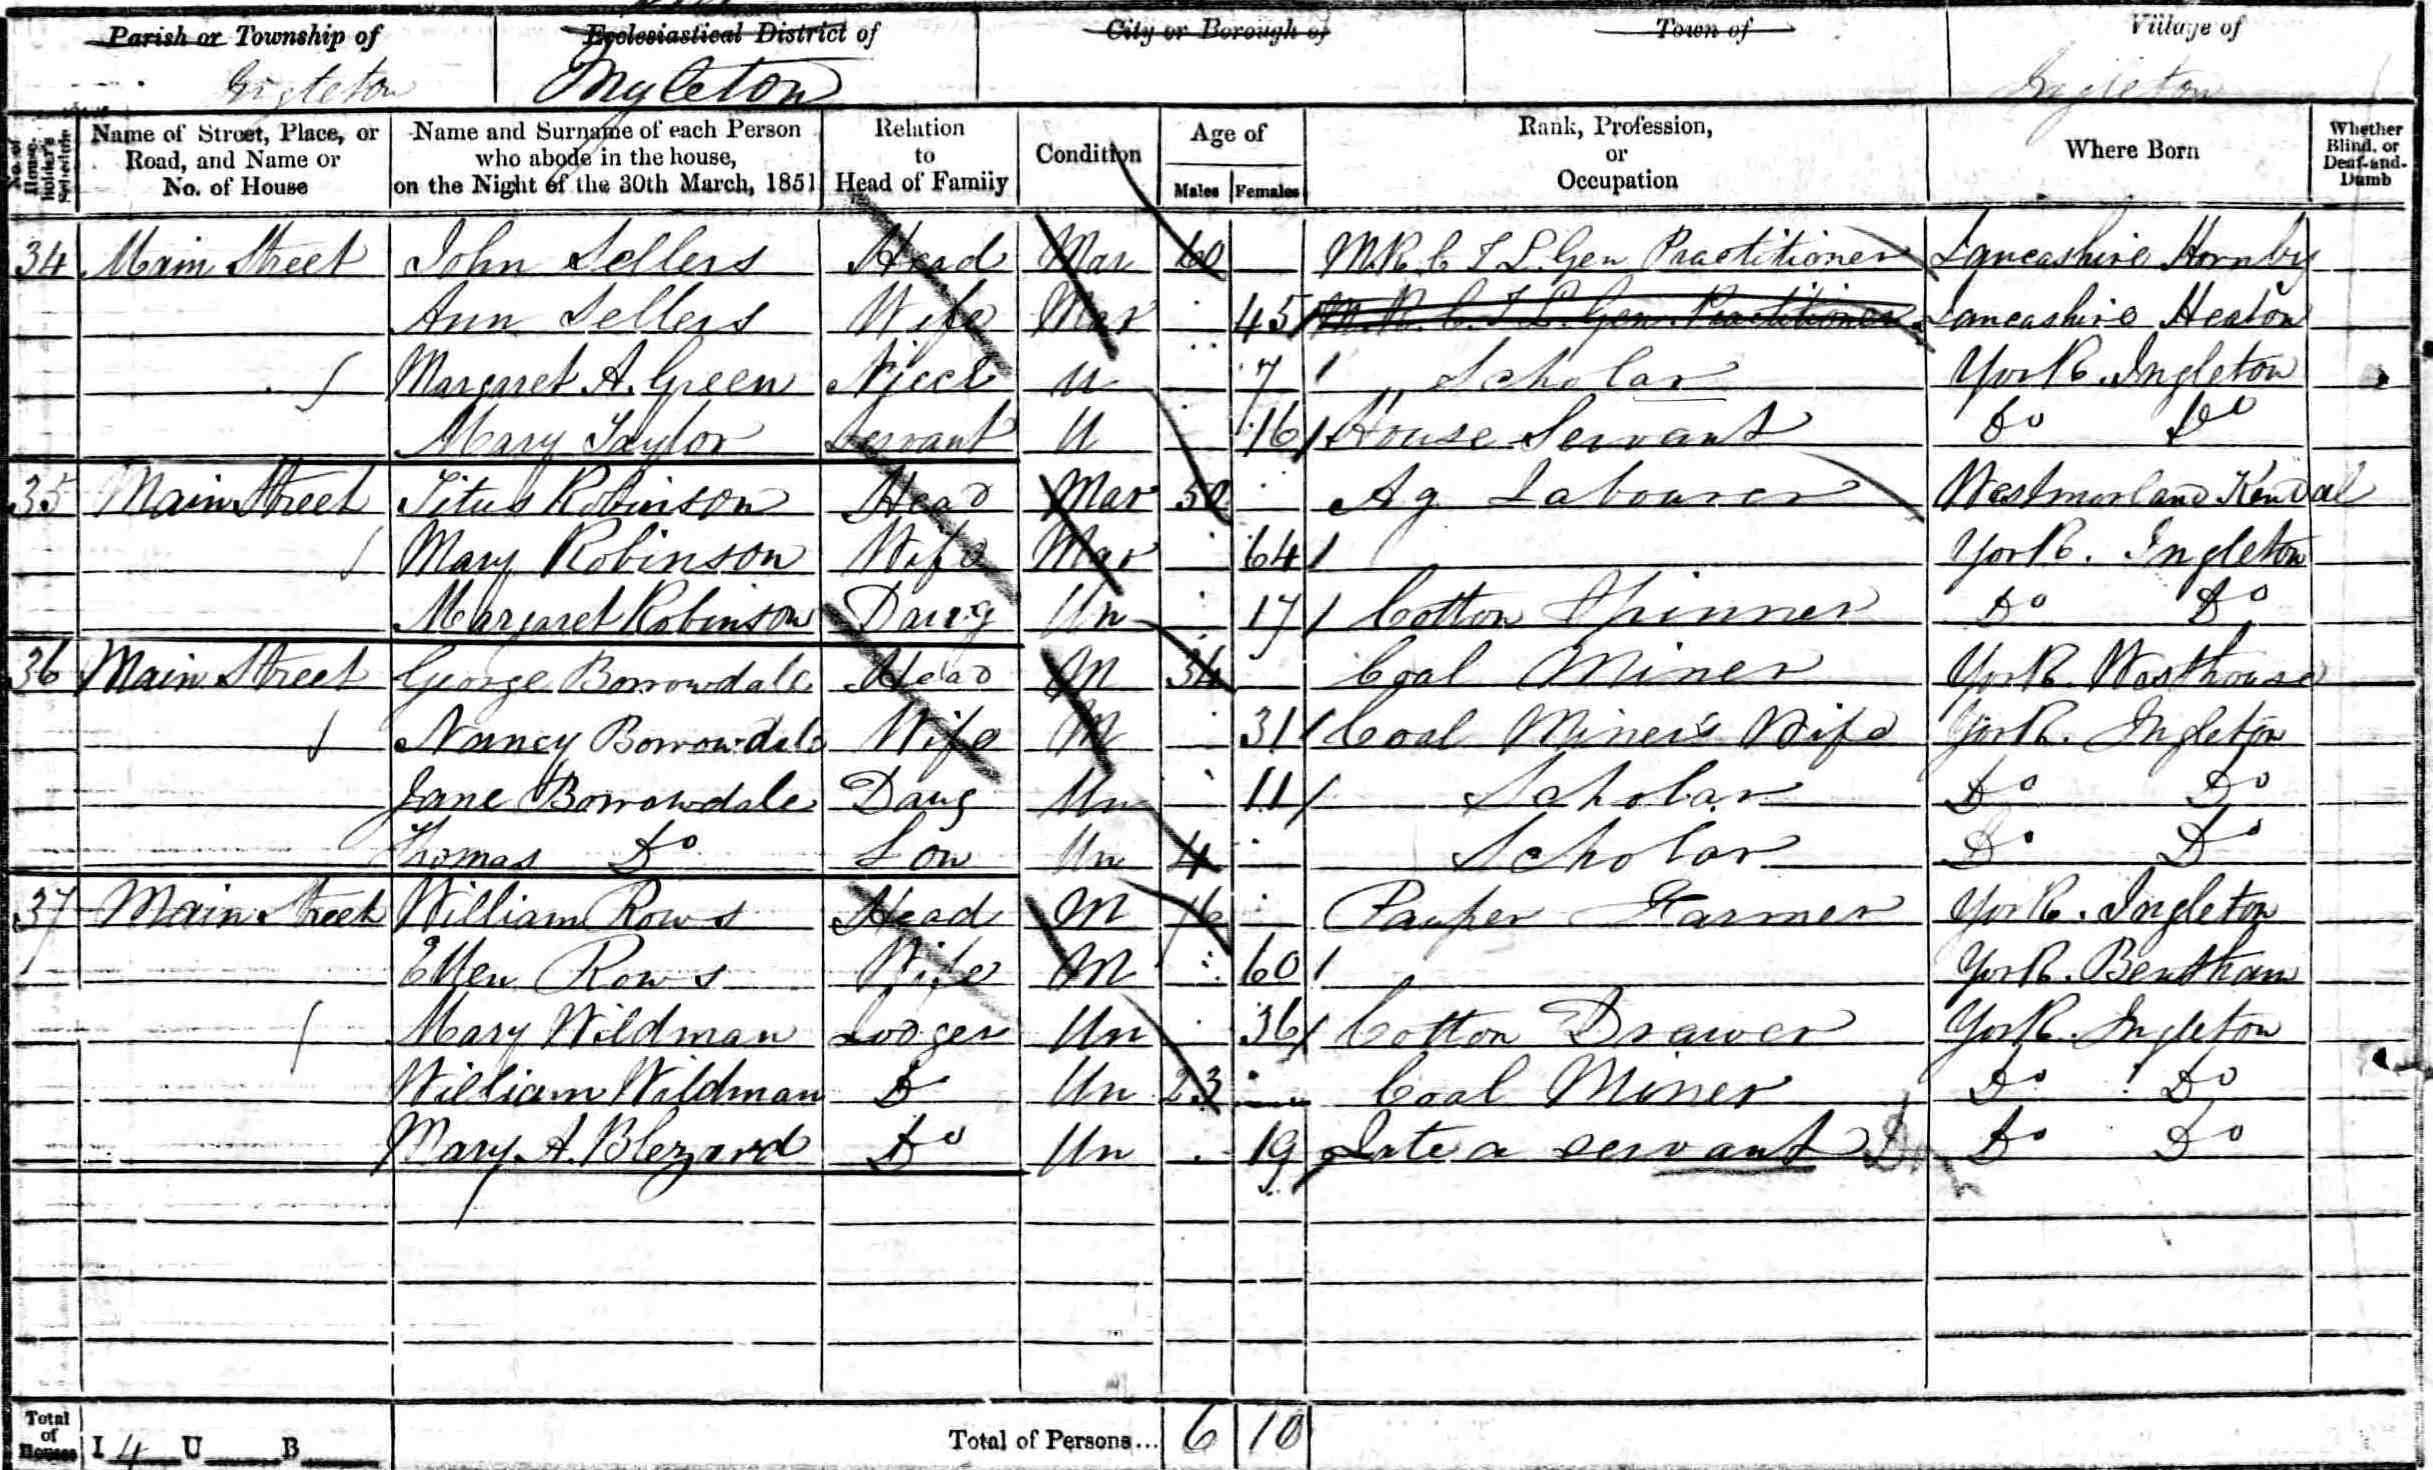 Parish or Township of Ecclesiastical District of City or Borough of Town of Village of
Ingleton Ingleton Ingleton
No. of House-holder's Schedule Name of Street, Place, or Road, and Name or No. of House Name and Surname of each Person who abode in the house, on the Night of the 30th March, 1851 Relation to Head of Family Condition Age of Males Females Rank, Profession, or Occupation Where Born Whether Blind, or Deaf-and-Dumb
34 Main Street John Sellers Head Mar 60 M.R.C.S.L. Gen Practitioner Lancashire Hornby
Ann Sellers Wife Mar 45 M.R.C.S.L. Gen Practitioner Lancashire Heaton
Margaret A. Green Niece U 7 Scholar York. Ingleton
Mary Taylor Servant U 16 House Servant Do Do
35 Main Street Titus Robinson Head Mar 50 Ag Labourer Westmorland Kendal
Mary Robinson Wife Mar 64 York. Ingleton
Margaret Robinson Daug Un 17 Cotton Spinner Do Do
36 Main Street George Borrowdale Head M 34 Coal Miner York. Westhouse
Nancy Borrowdale Wife M 31 Coal Miner's Wife York. Ingleton
Jane Borrowdale Daug Un 11 Scholar Do Do
Thomas Do Son Un 4 Scholar Do Do
37 Main Street William Rows Head M 76 Pauper Farmer York. Ingleton
Ellen Rows Wife M 60 York. Bentham
Mary Wildman Lodger Un 36 Cotton Drawer York. Ingleton
William Wildman Do Un 23 Coal Miner Do Do
Mary A. Blezard Do Un 19 Late a servant Do Do
Total of Houses I 4 U B Total of Persons... 6 10